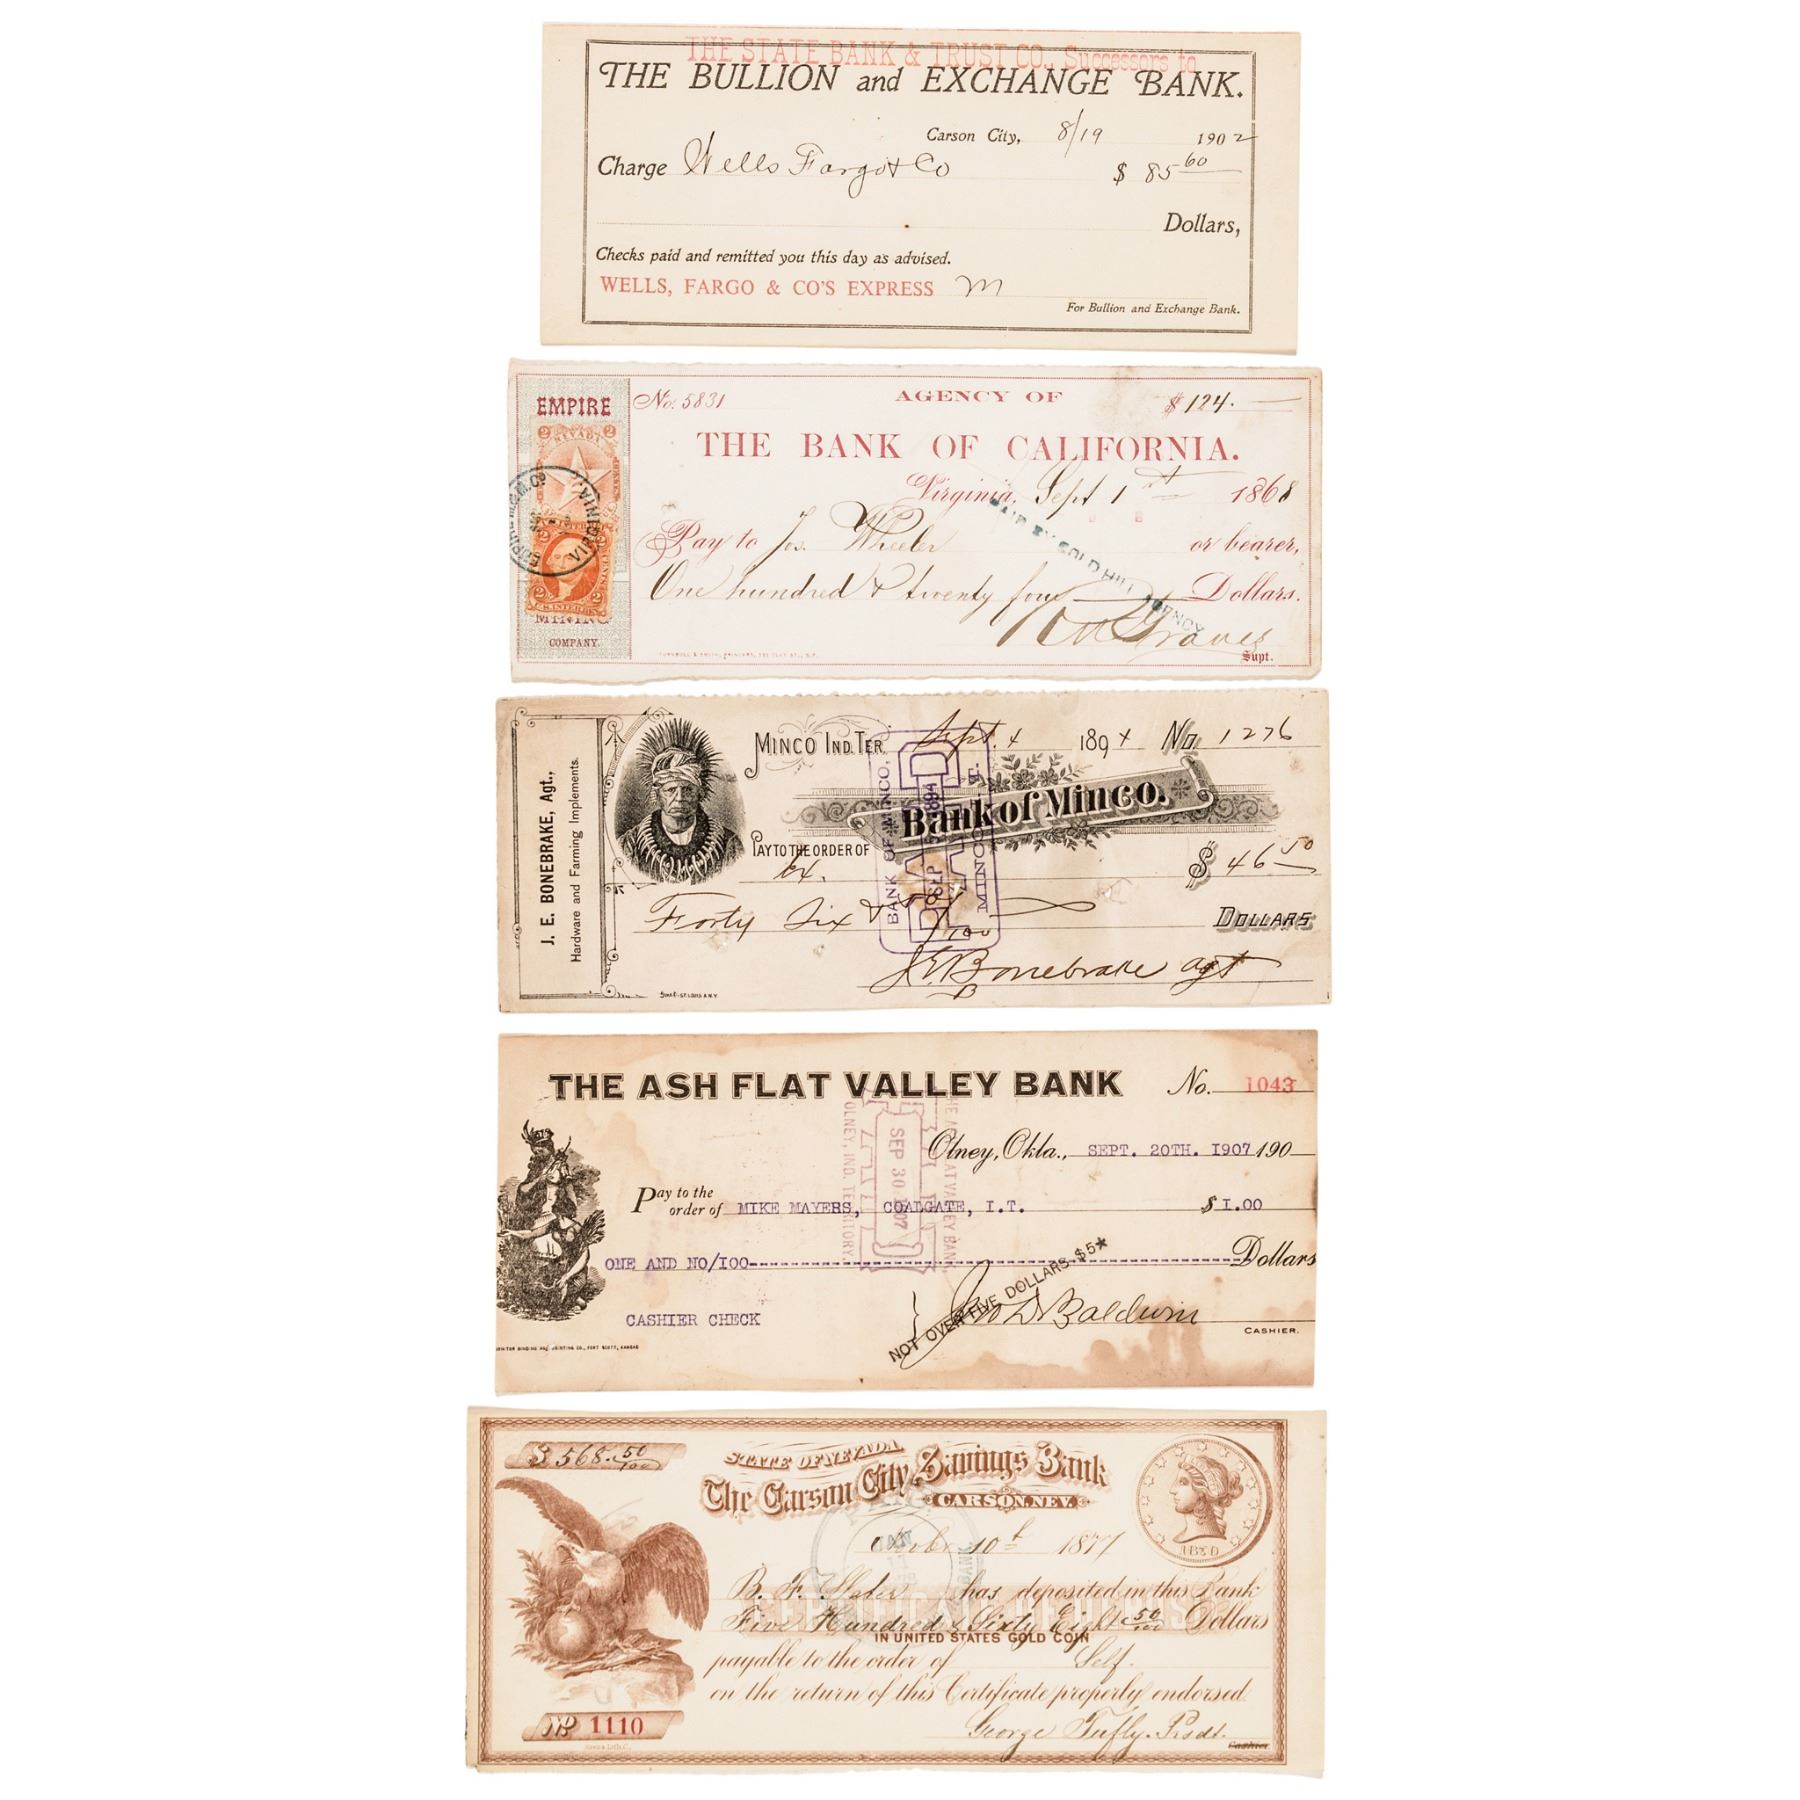 THE STATE BANK & TRUST CO., Successors to
THE BULLION and EXCHANGE BANK.
Carson City, 8/19 1902
Charge Wells Fargo & Co $ 85 60
Dollars,
Checks paid and remitted you this day as advised.
WELLS, FARGO & CO'S EXPRESS M
For Bullion and Exchange Bank.
EMPIRE
MINING
COMPANY.
2 NEVADA 2
2 CENTS 2
U.S. INTER. REV.
EMPIRE M. & M. CO.
VIRGINIA
No. 5831 AGENCY OF $ 124.
THE BANK OF CALIFORNIA.
Virginia, Sept 1st 1868
Pay to Jos. Wheeler or bearer,
One hundred & twenty four Dollars.
GOLD HILL AGENCY
Graves
Supt.
J. E. BONEBRAKE, Agt.,
Hardware and Farming Implements.
MINCO IND. TER. Sept. 4 1894 No. 1276
Bank of Minco.
PAY TO THE ORDER OF
$ 46 50
Forty Six & 50/100 DOLLARS
J E Bonebrake agt
BANK OF MINCO,
PAID
SEP 5 1894
MINCO, I. T.
THE ASH FLAT VALLEY BANK No. 1043
Olney, Okla., SEPT. 20TH. 1907 190
Pay to the
order of MIKE MAYERS, COALGATE, I.T. $ 1.00
ONE AND NO/100 Dollars
CASHIER CHECK
NOT OVER FIVE DOLLARS $5★
Jno D Baldwin
CASHIER.
THE ASH FLAT VALLEY BANK,
SEP 30 1907
OLNEY, IND. TERRITORY.
PRINTING CO., FORT SCOTT, KANSAS
$ 568. 50/100
STATE OF NEVADA
The Carson City Savings Bank
CARSON, NEV.
Octobr 10th 1877
B. F. Slater has deposited in this Bank
Five Hundred & Sixty Eight & 50/100 Dollars
CERTIFICATE OF DEPOSIT
IN UNITED STATES GOLD COIN
payable to the order of Self.
on the return of this Certificate properly endorsed.
George Tufly. Presdt.
Cashier
No 1110